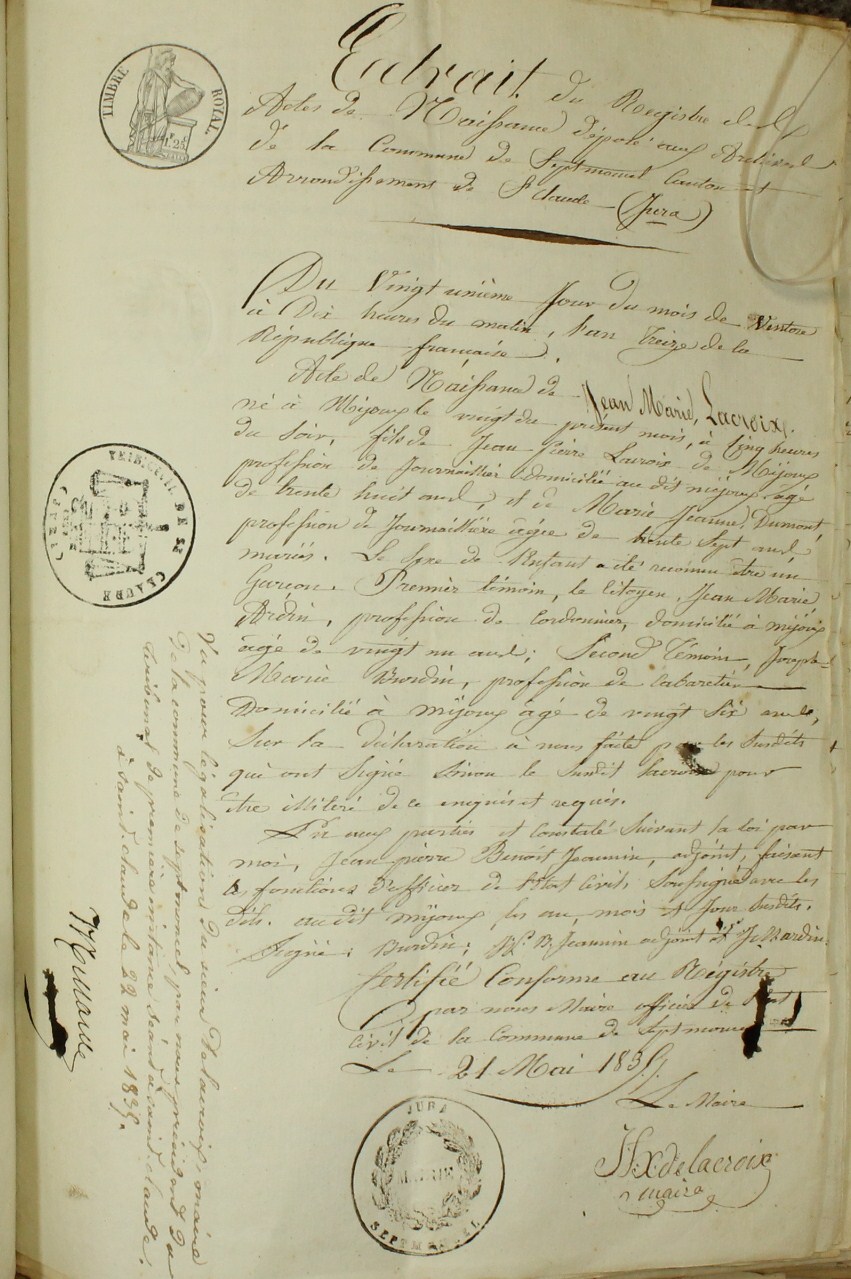 TIMBRE ROYAL
Extrait du Registre des
Actes de Naissance déposé aux Archives
de la Commune de Septmoncel Canton et
Arrondissement de St Claude (Jura)
Du Vingt unième Jour du mois de Ventose
à Dix heures du matin, l'an treize de la
République française.
Acte de Naissance de Jean Marie Lacroix,
né à Mijoux le vingt du présent mois, à Cinq heures
du soir, fils de Jean Pierre Lacroix de Mijoux
profession de Journaillier domicilié au dit mijoux agé
de trente huit ans, et de Marie Jeanne Dumont
profession de Journaillière agée de trente sept ans
mariés. Le sexe de l'Enfant a été reconnu être un
Garcon. Premier témoin, le Citoyen Jean Marie
Ardin, profession de Cordonnier, domicilié à mijoux
agé de vingt un ans; Second Témoin, Joseph
Marie Burdin, profession de Cabaretier
Domicilié à mijoux agé de vingt six ans,
Sur la déclaration à nous faite par les Susdits
qui ont Signé Sinon le Susdit lacroix pour
être illiteré de ce enquis et requis.
Lu aux parties et Constaté Suivant la loi par
moi, Jean pierre Benoit Jeannin, adjoint, faisant
les fonctions d'officier de l'Etat Civil, Soussigné avec les
dits. au dit mijoux, les an, mois et Jour Susdits.
Signé: Burdin; B. Jeannin adjoint et J. M. ardin.
Certifié Conforme au Registre
par nous Maire officier de l'Etat
civil de la Commune de Septmoncel
Le 21 Mai 1835.
Le Maire
Hx delacroix
maire
JURA
MAIRIE
SEPTMONCEL
TRIBUNAL CIVIL DE ST CLAUDE
Vu pour légalisation du sieur Delacroix, maire
de la commune de septmoncel, par nous président du
tribunal de première instance séant à saint claude.
à saint claude le 22 mai 1835.